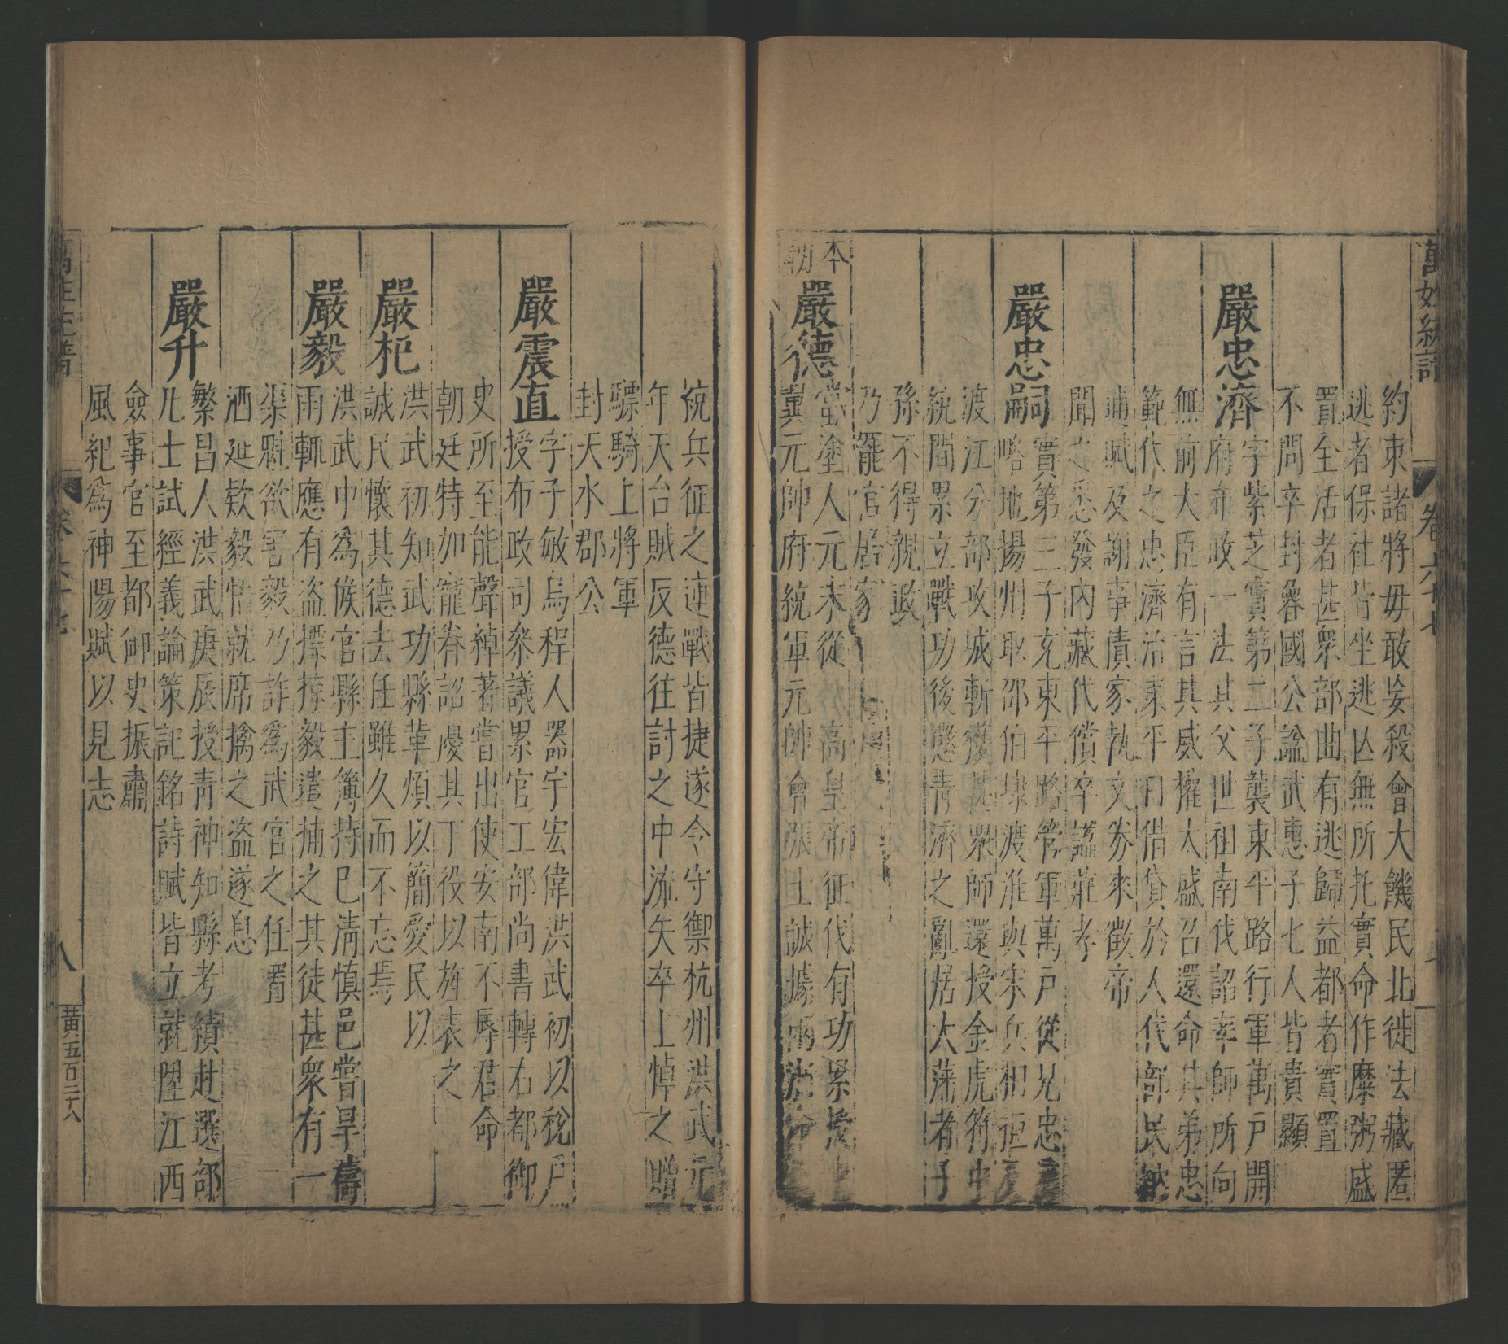 萬姓統譜
卷六十七
約束諸將毋敢妄殺會大饑民北徙法藏匿
逃者保社皆坐逃亾無所托實命作糜粥盛
置全活者甚衆部曲有逃歸益都者實置
不問卒封魯國公謚武惠子七人皆貴顯
嚴忠濟
字紫芝實第二子襲東平路行軍萬戸開
府布政一法其父世祖南伐詔率師所向
無前大臣有言其威權太盛召還命其弟忠
範代之忠濟治東平日借貸於人代部民納
逋賦及謝事債家執文券來徵帝
聞之悉發内藏代償卒謚莊孝
嚴忠嗣
實第三子充東平路管軍萬戸從兄忠
略地揚州取邵伯埭渡淮與宋兵相距
渡江分部攻城斬獲甚衆師還授金虎符中
統間累立戰功後懲青濟之亂居大藩者子
孫不得親政
乃罷官居家
本朝
嚴德
當塗人元末從 高皇帝征伐有功累授
冀元帥府統軍元帥會張士誠據兩浙命
統兵征之連戰皆捷遂令守禦杭州洪武元
年天台賊反德往討之中流矢卒上悼之贈
驃騎上將軍
封天水郡公
嚴震直
字子敏烏程人器宇宏偉洪武初以稅戸
授布政司叅議累官工部尚書轉右都御
史所至能聲綽著嘗出使安南不辱君命
朝廷特加寵眷詔優其丁役以旌表之
嚴杞
洪武初知武功縣革煩以簡愛民以
誠民懷其德去任雖久而不忘焉
嚴毅
洪武中爲候官縣主簿持已清慎邑嘗旱禱
雨輒應有盗摽掠毅遣捕之其徒甚衆有一
渠魁欲害毅乃詐爲武官之任置
酒延欵毅悄就席擒之盗遂息
嚴升
繁昌人洪武庚辰授青神知縣考績赴選部
凡士試經義論策詎銘詩賦皆立就陞江西
僉事官至都御史振肅
風紀爲神陽賦以見志
八
黄五百二十八